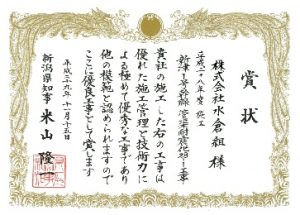 賞状
株式会社水倉組 様
平成二十八年度 施工
貴社の施工した右の工事は
優れた施工管理と技術力に
より極めて優秀な工事であり
他の模範と認められますので
ここに優良工事として賞します
平成二十九年十一月十五日
新潟県知事 米山隆一